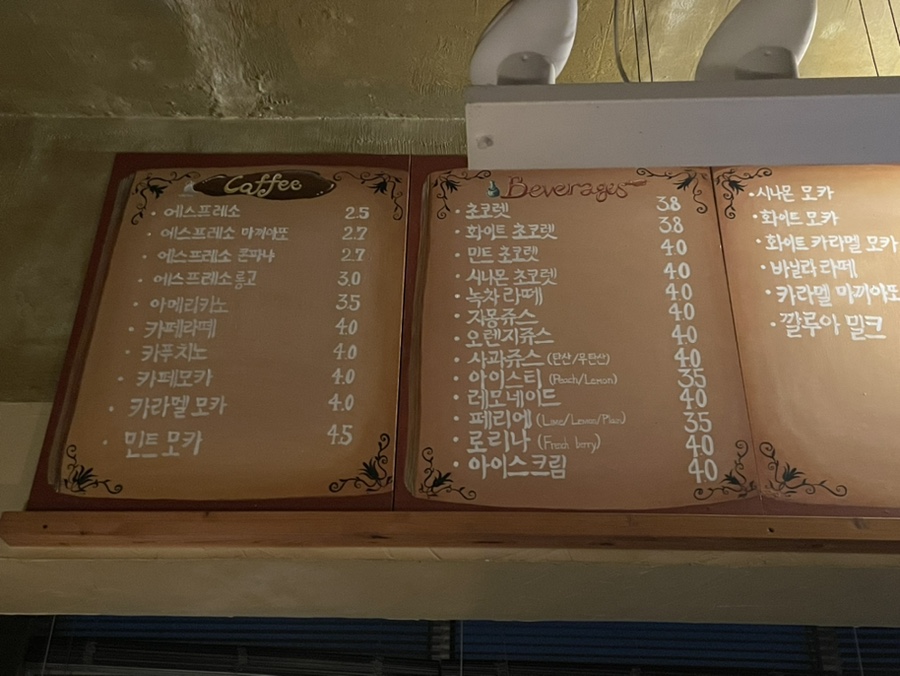 Coffee
• 에스프레소 2.5
• 에스프레소 마끼아또 2.7
• 에스프레소 콘파나 2.7
• 에스프레소 룽고 3.0
• 아메리카노 3.5
• 카페라떼 4.0
• 카푸치노 4.0
• 카페모카 4.0
• 카라멜 모카 4.0
• 민트 모카 4.5
Beverages
• 초코렛 3.8
• 화이트 초코렛 3.8
• 민트 초코렛 4.0
• 시나몬 초코렛 4.0
• 녹차 라떼 4.0
• 자몽쥬스 4.0
• 오렌지쥬스 4.0
• 사과쥬스 (탄산/무탄산) 4.0
• 아이스티 (Peach/Lemon) 3.5
• 레모네이드 4.0
• 페리에 (Lime/Lemon/Plain) 3.5
• 로리나 (Fresh berry) 4.0
• 아이스크림 4.0
• 시나몬 모카
• 화이트 모카
• 화이트 카라멜 모카
• 바닐라 라떼
• 카라멜 마끼아또
• 깔루아 밀크